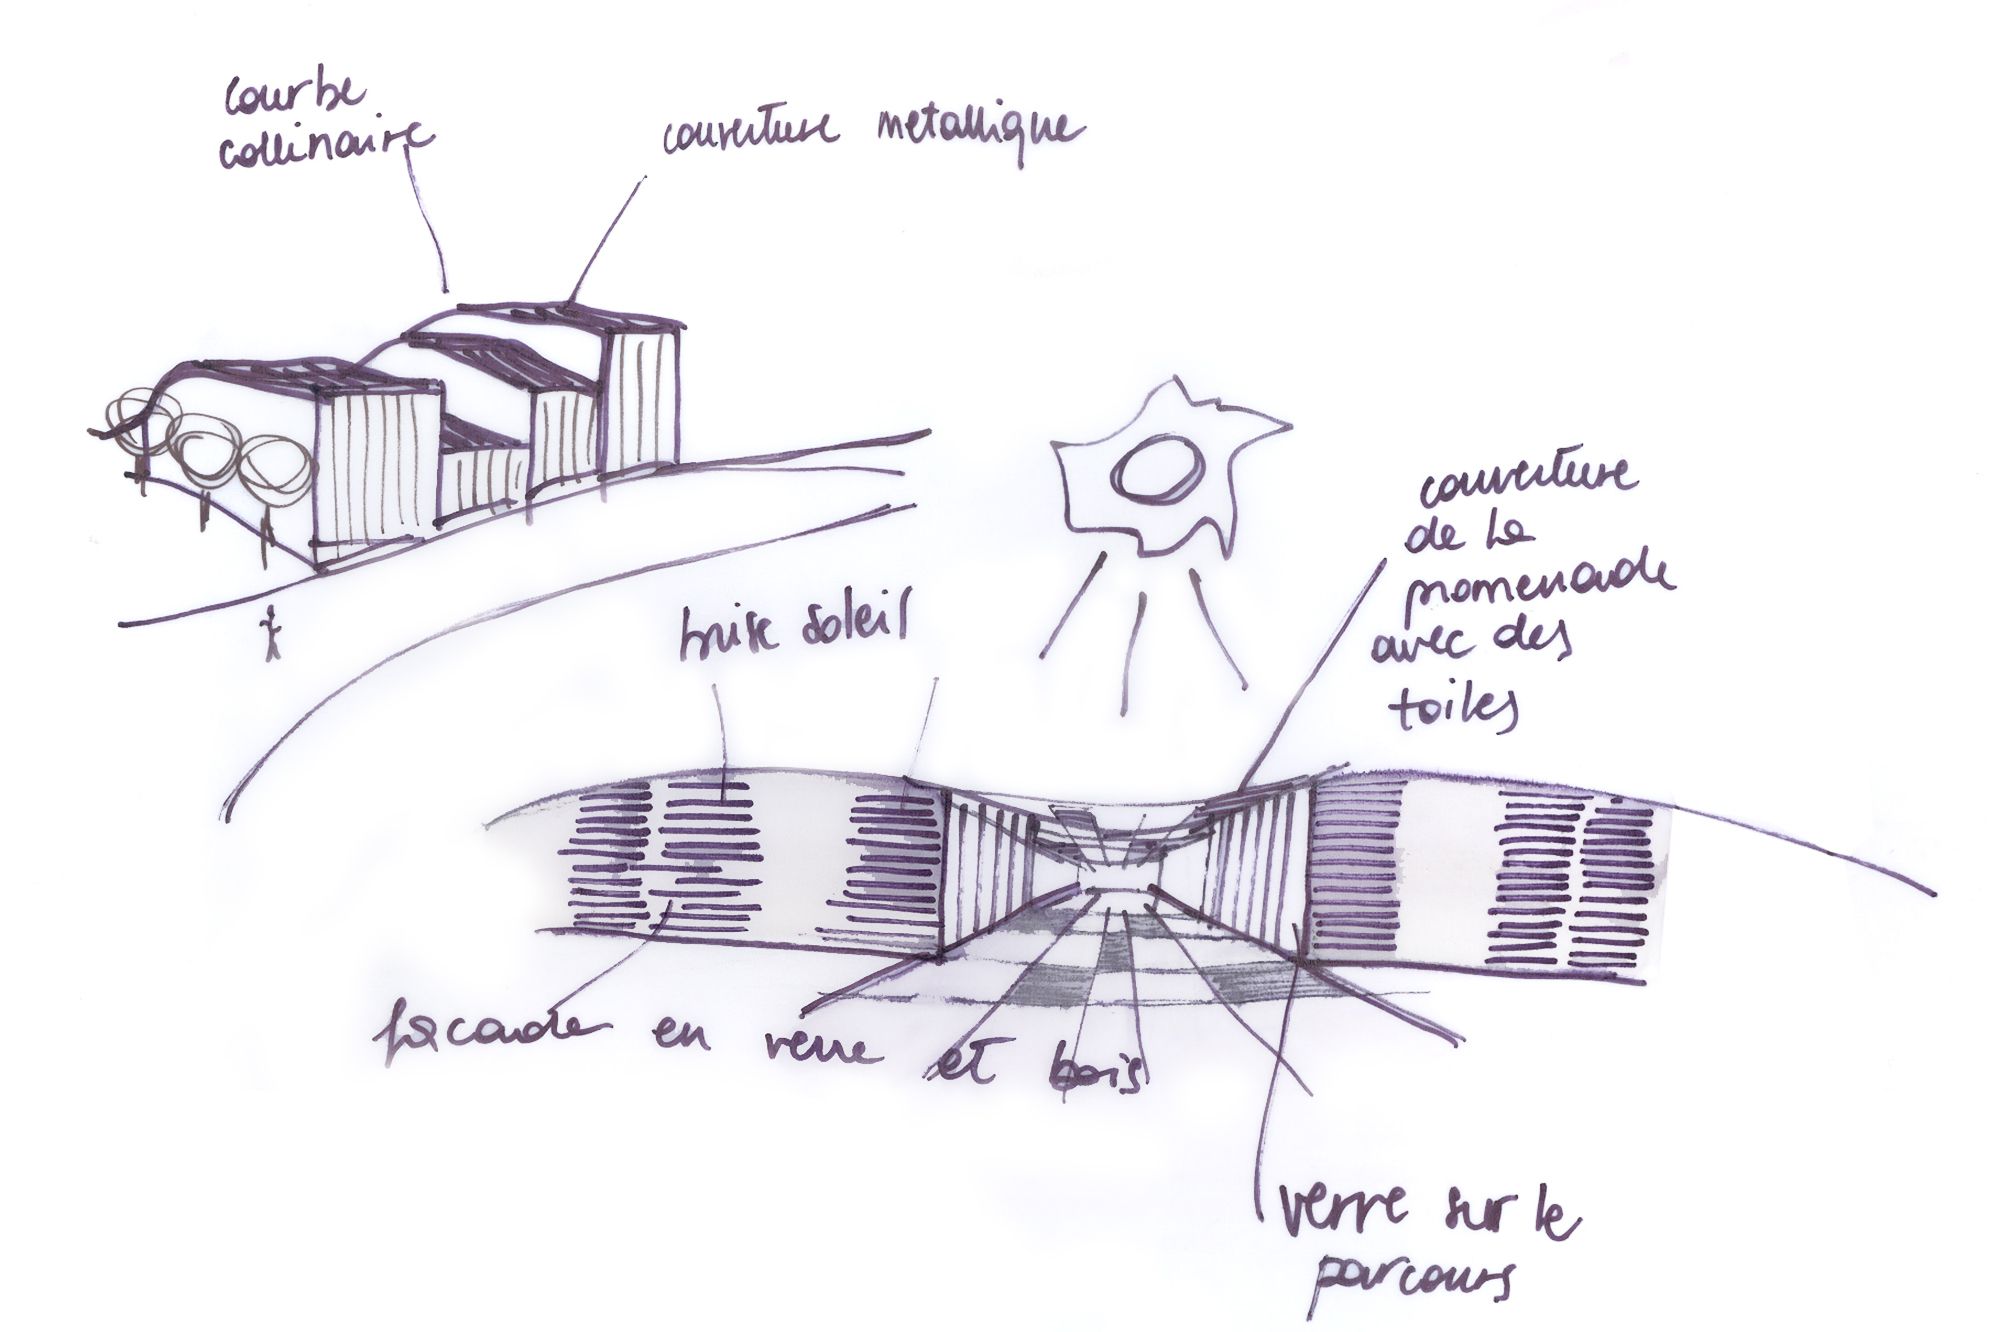 courbe
collinaire
couverture metallique
couverture
de la
promenade
avec des
toiles
brise soleil
facade en verre et bois
verre sur le
parcours